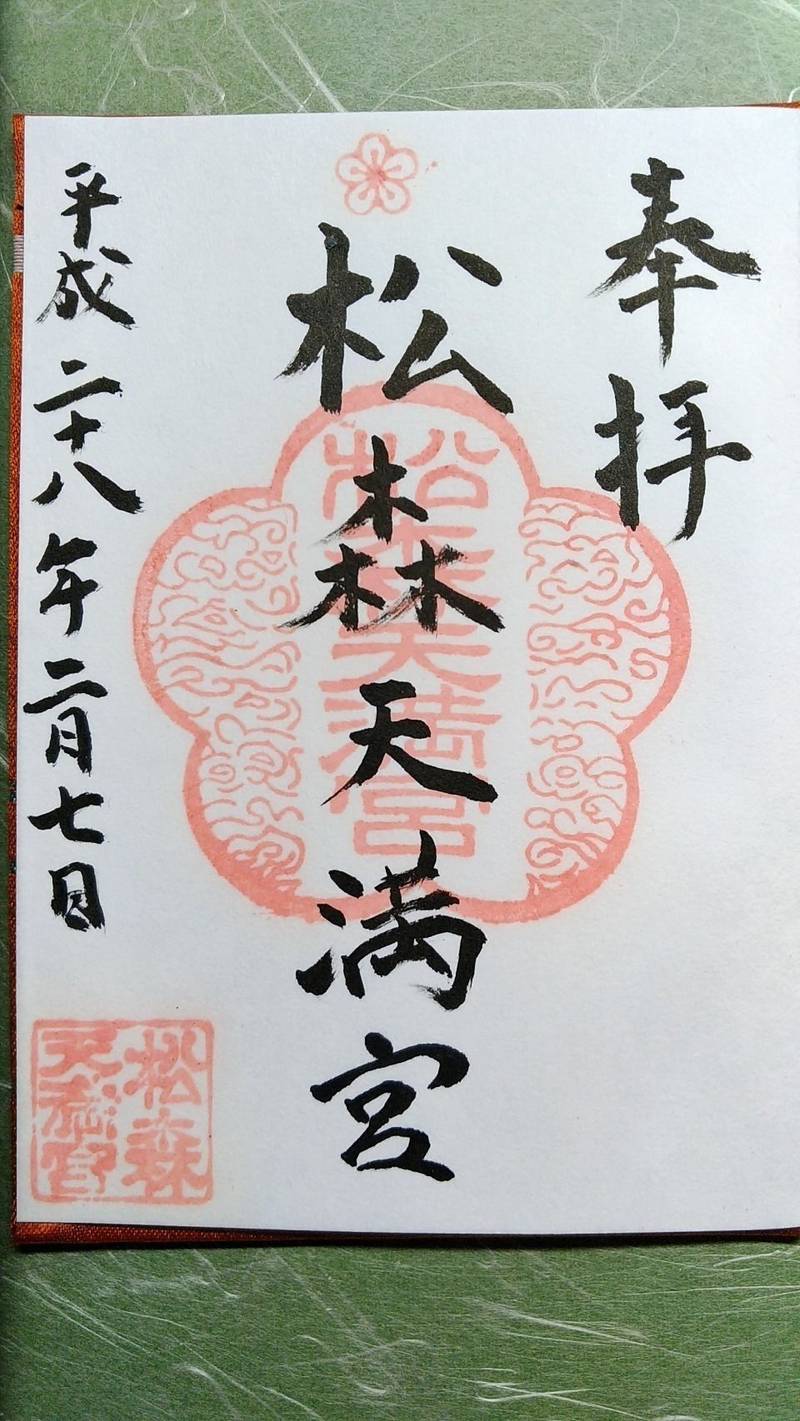 奉拝
松森天満宮
平成二十八年二月七日
松森天満宮
松森
天満宮